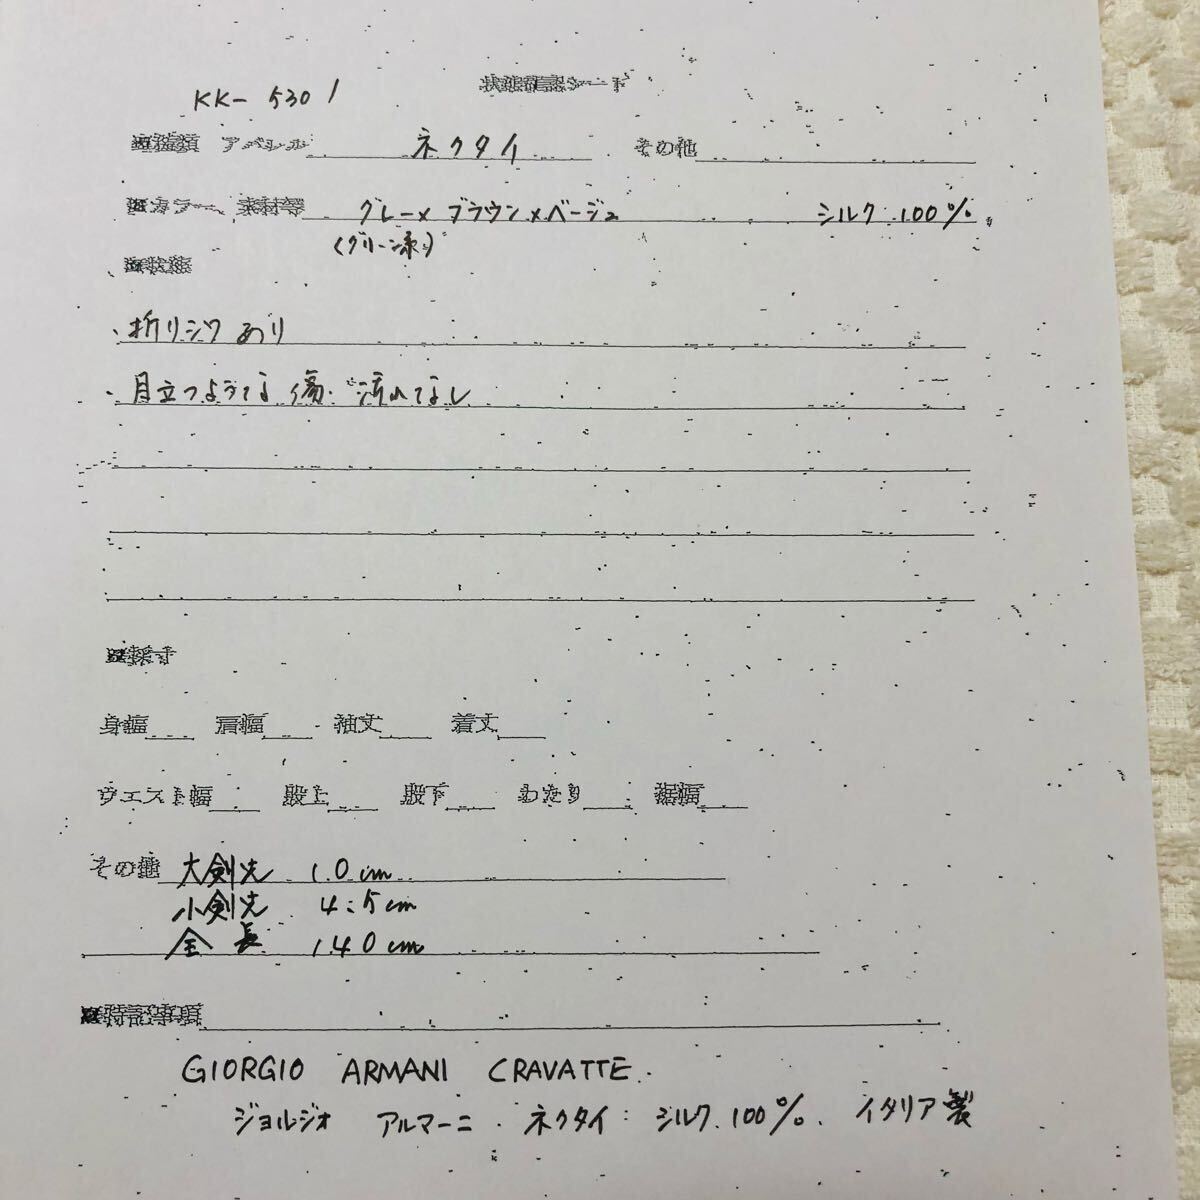 KK- 5301
状態確認シート
■種類 アパレル ネクタイ その他
■カラー、素材等 グレー×ブラウン×ベージュ シルク 100%
(グリーン系)
■状態
・折りジワあり
・目立つような傷、汚れなし
■採寸
身幅 肩幅 袖丈 着丈
ウエスト幅 股上 股下 わたり 裾幅
その他 大剣先 10cm
小剣先 4.5cm
全長 140cm
■特記事項
GIORGIO ARMANI CRAVATTE
ジョルジオ アルマーニ ネクタイ シルク 100% イタリア製